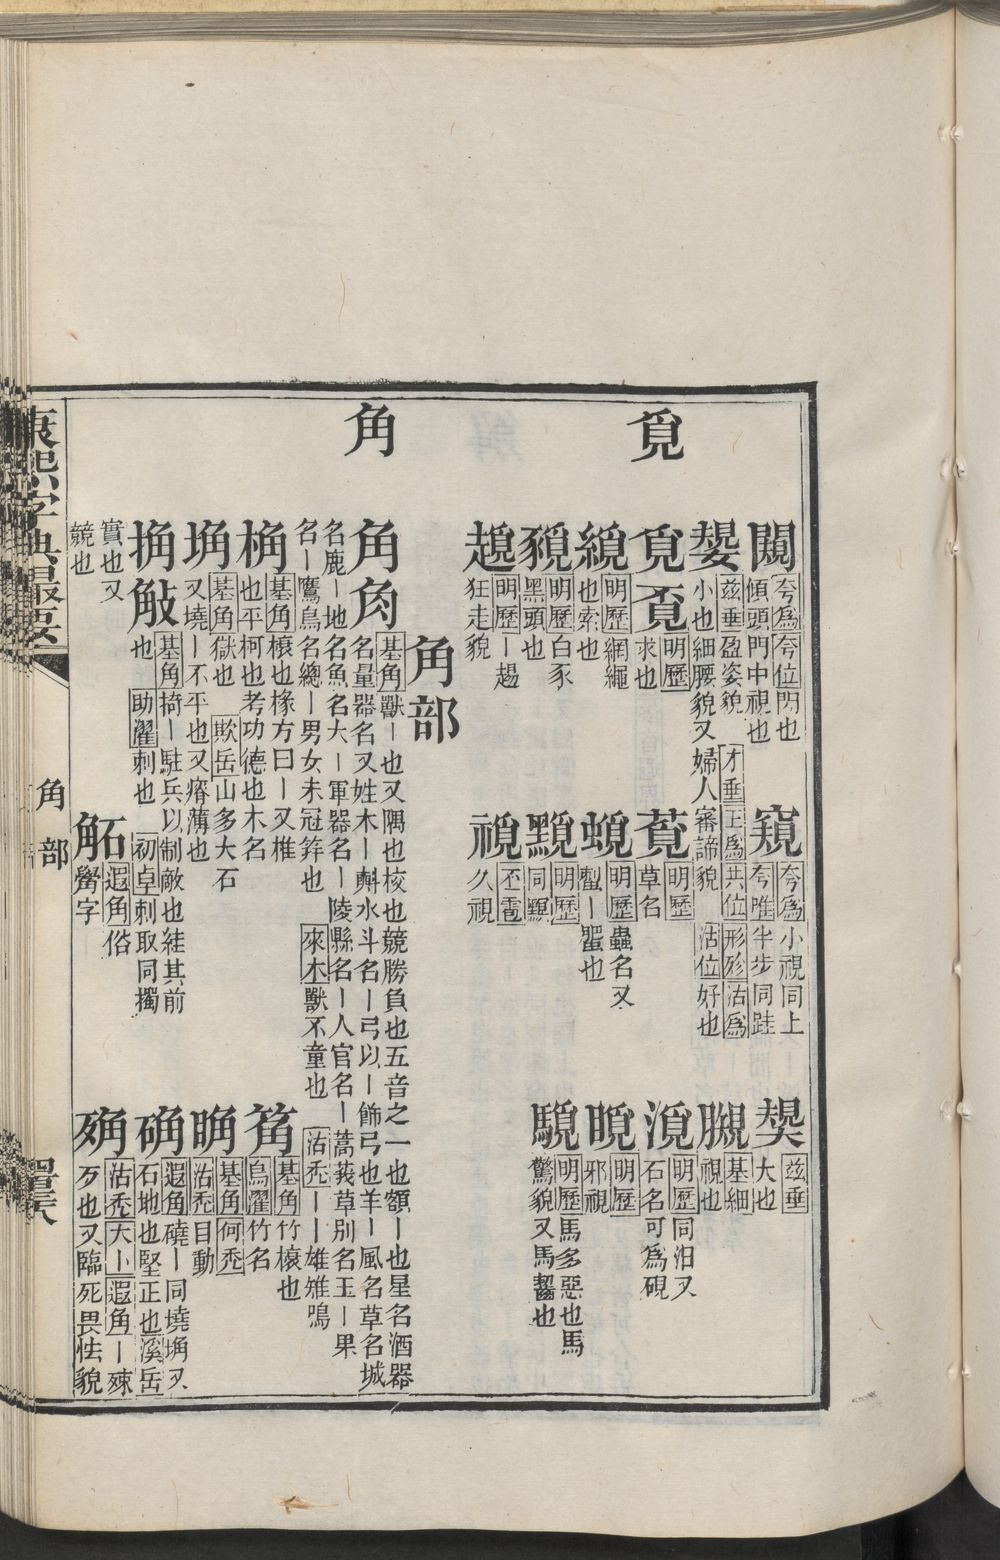 覓
闚 夸爲夸位閃也
傾頭門中視也
窺 夸爲小視同上
夸唯半步同跬
茲垂
大也
茲垂盈姿貌
小也細腰貌又婦人審諦貌
才垂王爲共位形殄沽爲
沽位好也
基細
視也
覓覔 明歷
求也
蓂 明歷
草名
明歷同汨又
石名可爲硯
明歷網繩
也索也
明歷蟲名又
明歷
邪視
明歷白豕
黑頭也
明歷
明歷馬多惡也馬
驚貌又馬齧也
明歷ー趨
狂走貌
丕雹
久視
角部
角
角 基角獸ー也又隅也校也競勝負也五音之一也額ー也星名酒器
名量器名又姓木ー斛水斗名ー弓以ー飾弓也羊ー風名草名城
名鹿ー地名魚名大ー軍器名ー陵縣名ー人官名ー蒿莪草別名玉ー果
名ー鷹鳥名總ー男女未冠筓也 來木獸不童也 沽禿ーー雄雉鳴
桷 基角榱也椽方曰ー又椎
也平柯也考功德也木名
基角竹榱也
烏濯竹名
埆 基角獄也 欺岳山多大石
又墝ー不平也又瘠薄也
基角何禿
沽禿目動
捔 基角掎ー駐兵以制敵也絓其前
也 助濯刺也 初卓刺取同擉
确 遐角磽ー同墝埆又
石地也堅正也溪岳
實也又
競也
遐角俗
觷字
沽禿大卜遐角ー殐
歹也又臨死畏怯貌
康熙字典最要
角部